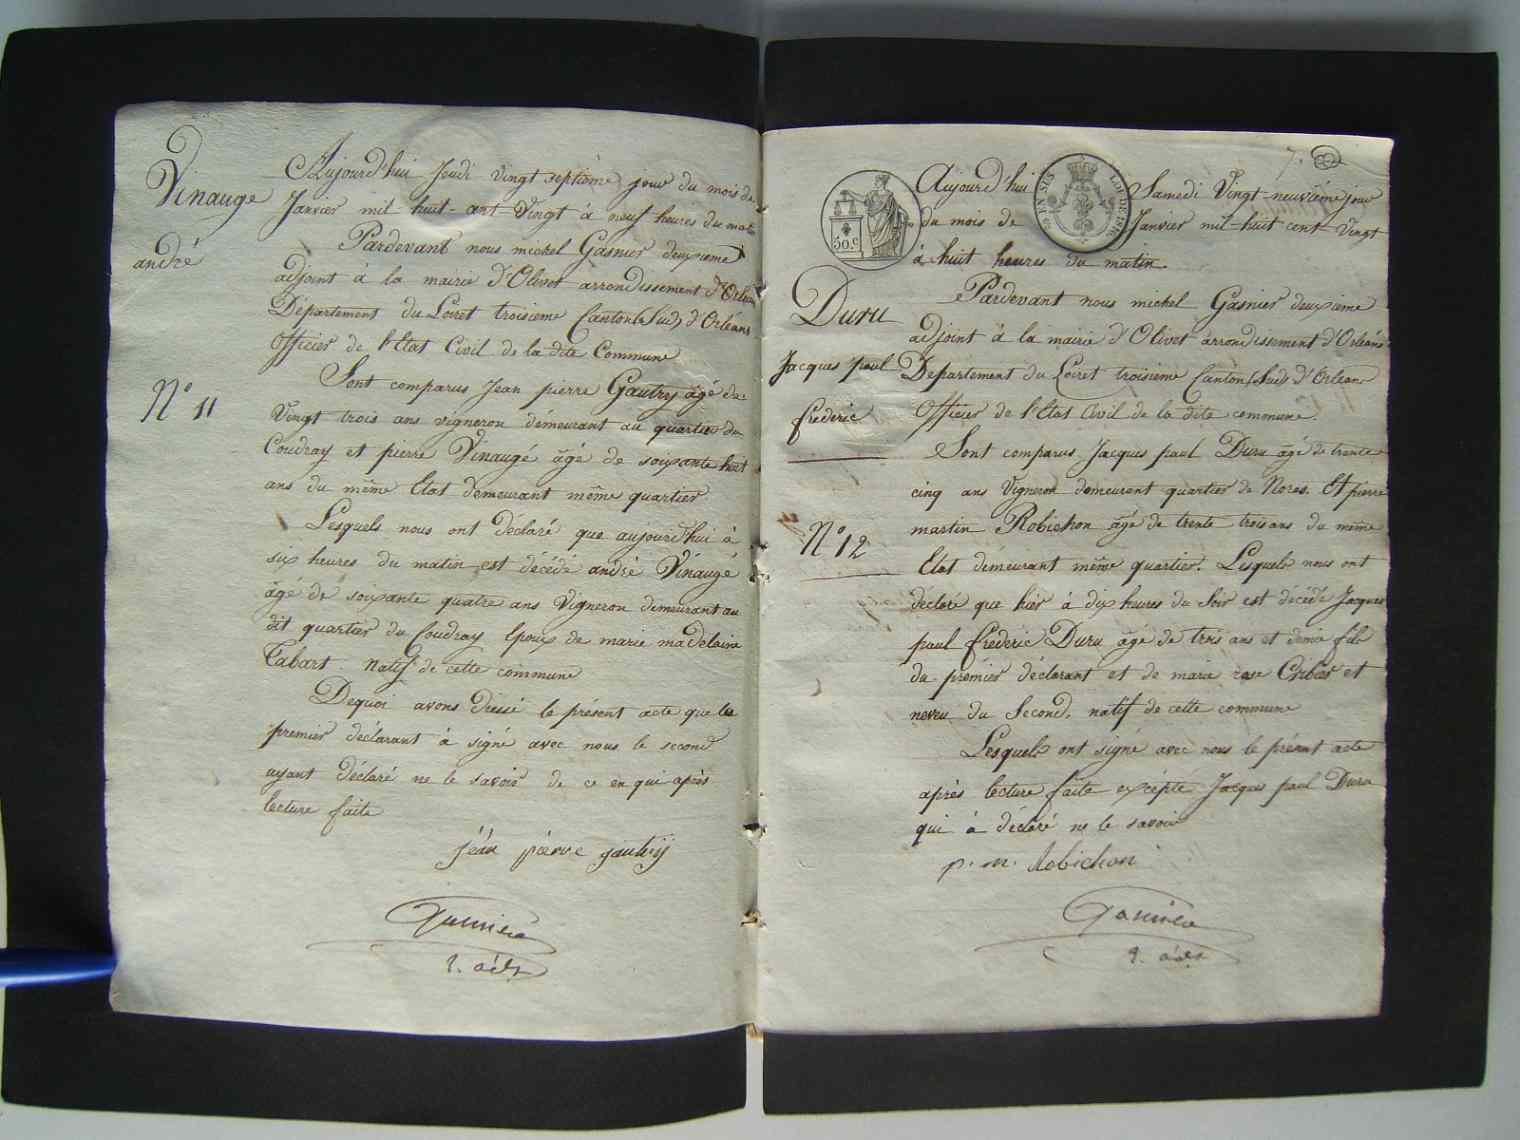 Vinauge
andré
N° 11
Aujourd'hui Jeudi vingt septième jour du mois de
Janvier mil huit-cent Vingt à neuf heures du matin
Pardevant nous michel Gasnier deuxieme
adjoint à la mairie d'Olivet arrondissement d'Orléans
Département du Loiret troisieme Canton (Sud) d'Orléans
Officier de l'Etat Civil de la dite Commune
Sont comparus Jean pierre Gautry âgé de
Vingt trois ans vigneron démeurant au quartier du
Coudray et pierre Vinaugé âgé de soixante huit
ans du même Etat demeurant même quartier
Lesquels nous ont déclaré que aujourd'hui à
six heures du matin est décédé andré Vinaugé
âgé de soixante quatre ans Vigneron demeurant au
dit quartier du Coudray Epoux de marie madelaine
Tabart. natif de cette commune
Dequoi avons dressé le présent acte que le
premier déclarant à signé avec nous le second
ayant déclaré ne le savoir de ce enqui après
lecture faite
jéan pierre gautry
Gasnier
2. adt
7.
50.c
EN SUS
Aujourd'hui Samedi Vingt-neuvième jour
du mois de Janvier mil-huit cent Vingt
à huit heures du matin.
Duru
Jacques paul
fréderic
N° 12
Pardevant nous michel Gasnier deuxieme
adjoint à la mairie d'Olivet arrondissement d'Orléans
Département du Loiret troisieme Canton (Sud) d'Orléans
Officier de l'Etat Civil de la dite commune.
Sont comparus Jacques paul Duru âgé de trente
cinq ans Vigneron demeurant quartier de Noras. Et pierre
martin Robichon âgé de trente trois ans du même
Etat démeurant même quartier. Lesquels nous ont
déclaré que hier à dix heures du Soir est décédé Jacques
paul fréderic Duru âgé de trois ans et demie fils
du prémier déclarant et de marie rose et
neveu du Second, natif de cette commune
Lesquels ont signé avec nous le présent acte
après lecture faite excépté Jacques paul Duru
qui à déclaré ne le savoir
p. m. Robichon
Gasnier
2. adt